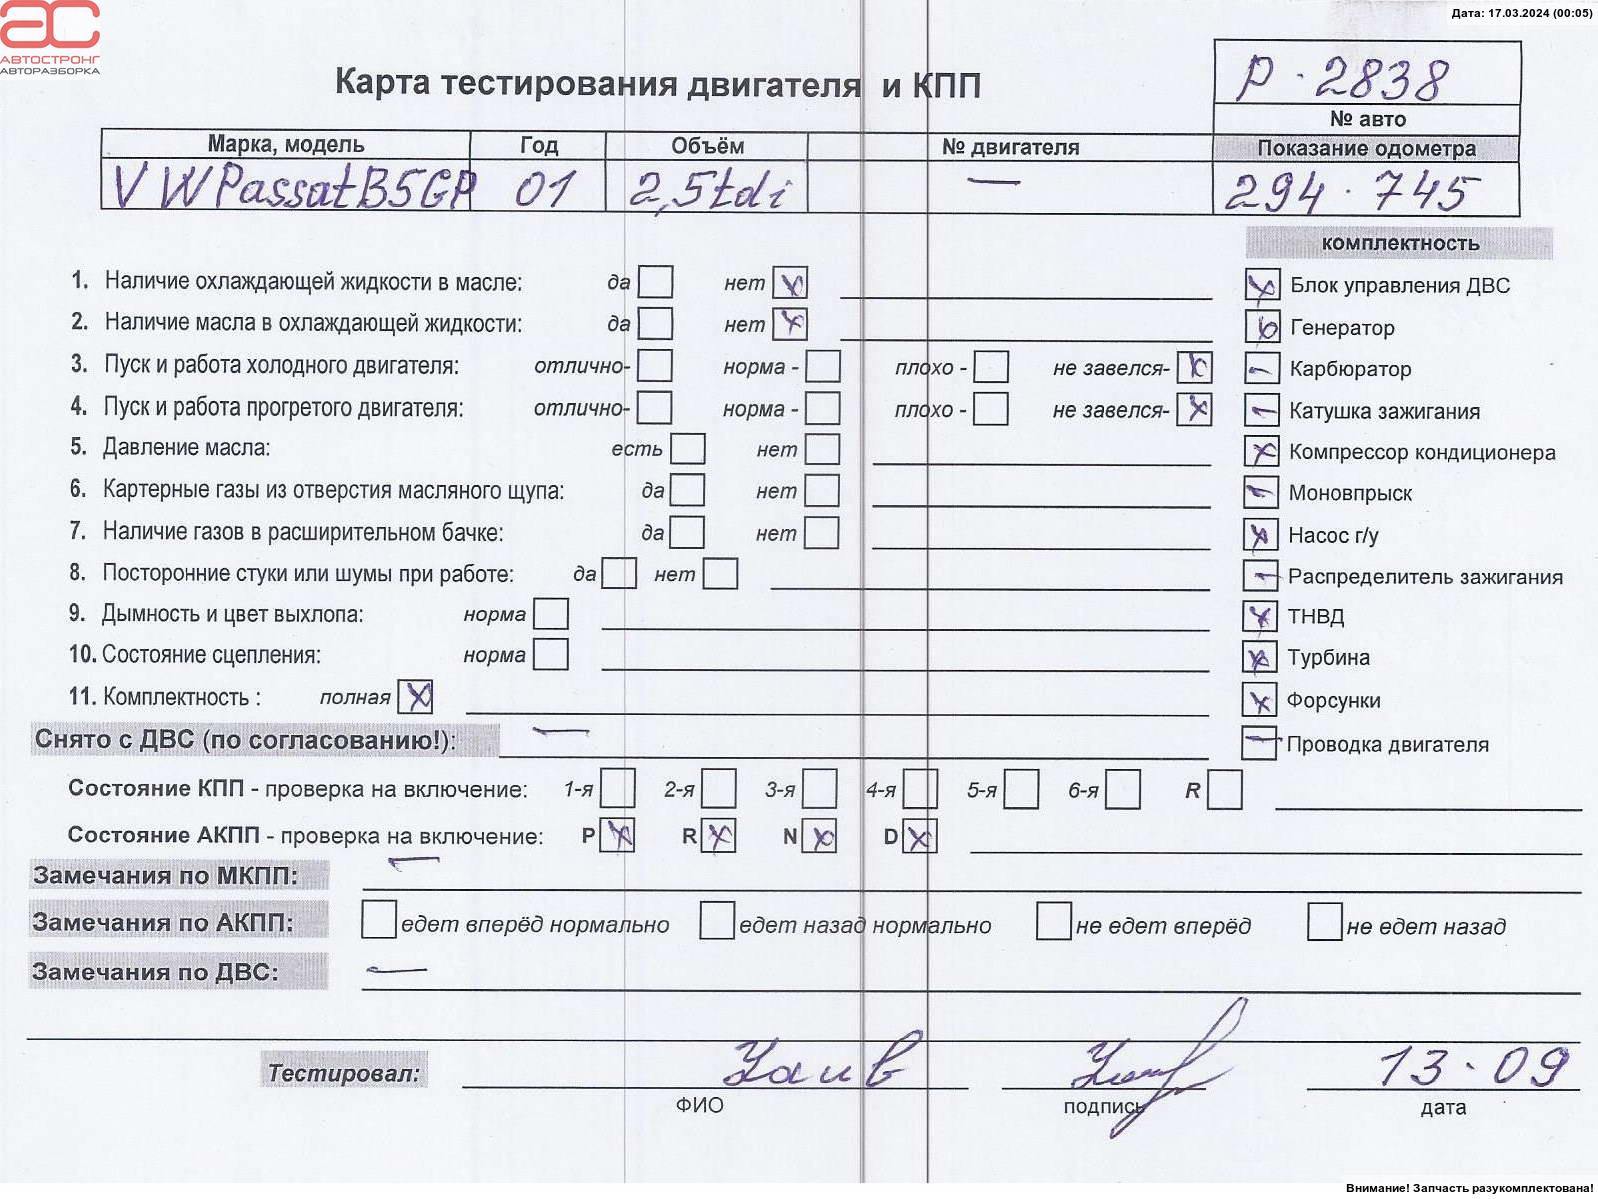 Дата: 17.03.2024 (00:05)
АС
АВТОСТРОНГ
АВТОРАЗБОРКА
Карта тестирования двигателя и КПП
Р · 2838
№ авто
Марка, модель Год Объём № двигателя Показание одометра
VW Passat B5GP 01 2,5tdi — 294 · 745
комплектность
1. Наличие охлаждающей жидкости в масле: да нет
Блок управления ДВС
2. Наличие масла в охлаждающей жидкости: да нет
Генератор
3. Пуск и работа холодного двигателя: отлично- норма - плохо - не завелся-
Карбюратор
4. Пуск и работа прогретого двигателя: отлично- норма - плохо - не завелся-
Катушка зажигания
5. Давление масла: есть нет
Компрессор кондиционера
6. Картерные газы из отверстия масляного щупа: да нет
Моновпрыск
7. Наличие газов в расширительном бачке: да нет
Насос г/у
8. Посторонние стуки или шумы при работе: да нет
Распределитель зажигания
9. Дымность и цвет выхлопа: норма
ТНВД
10. Состояние сцепления: норма
Турбина
11. Комплектность : полная
Форсунки
Снято с ДВС (по согласованию!): —
Проводка двигателя
Состояние КПП - проверка на включение: 1-я 2-я 3-я 4-я 5-я 6-я R
Состояние АКПП - проверка на включение: P R N D
Замечания по МКПП: —
Замечания по АКПП: едет вперёд нормально едет назад нормально не едет вперёд не едет назад
Замечания по ДВС: —
Тестировал: 13 · 09
ФИО подпись дата
Внимание! Запчасть разукомплектована!